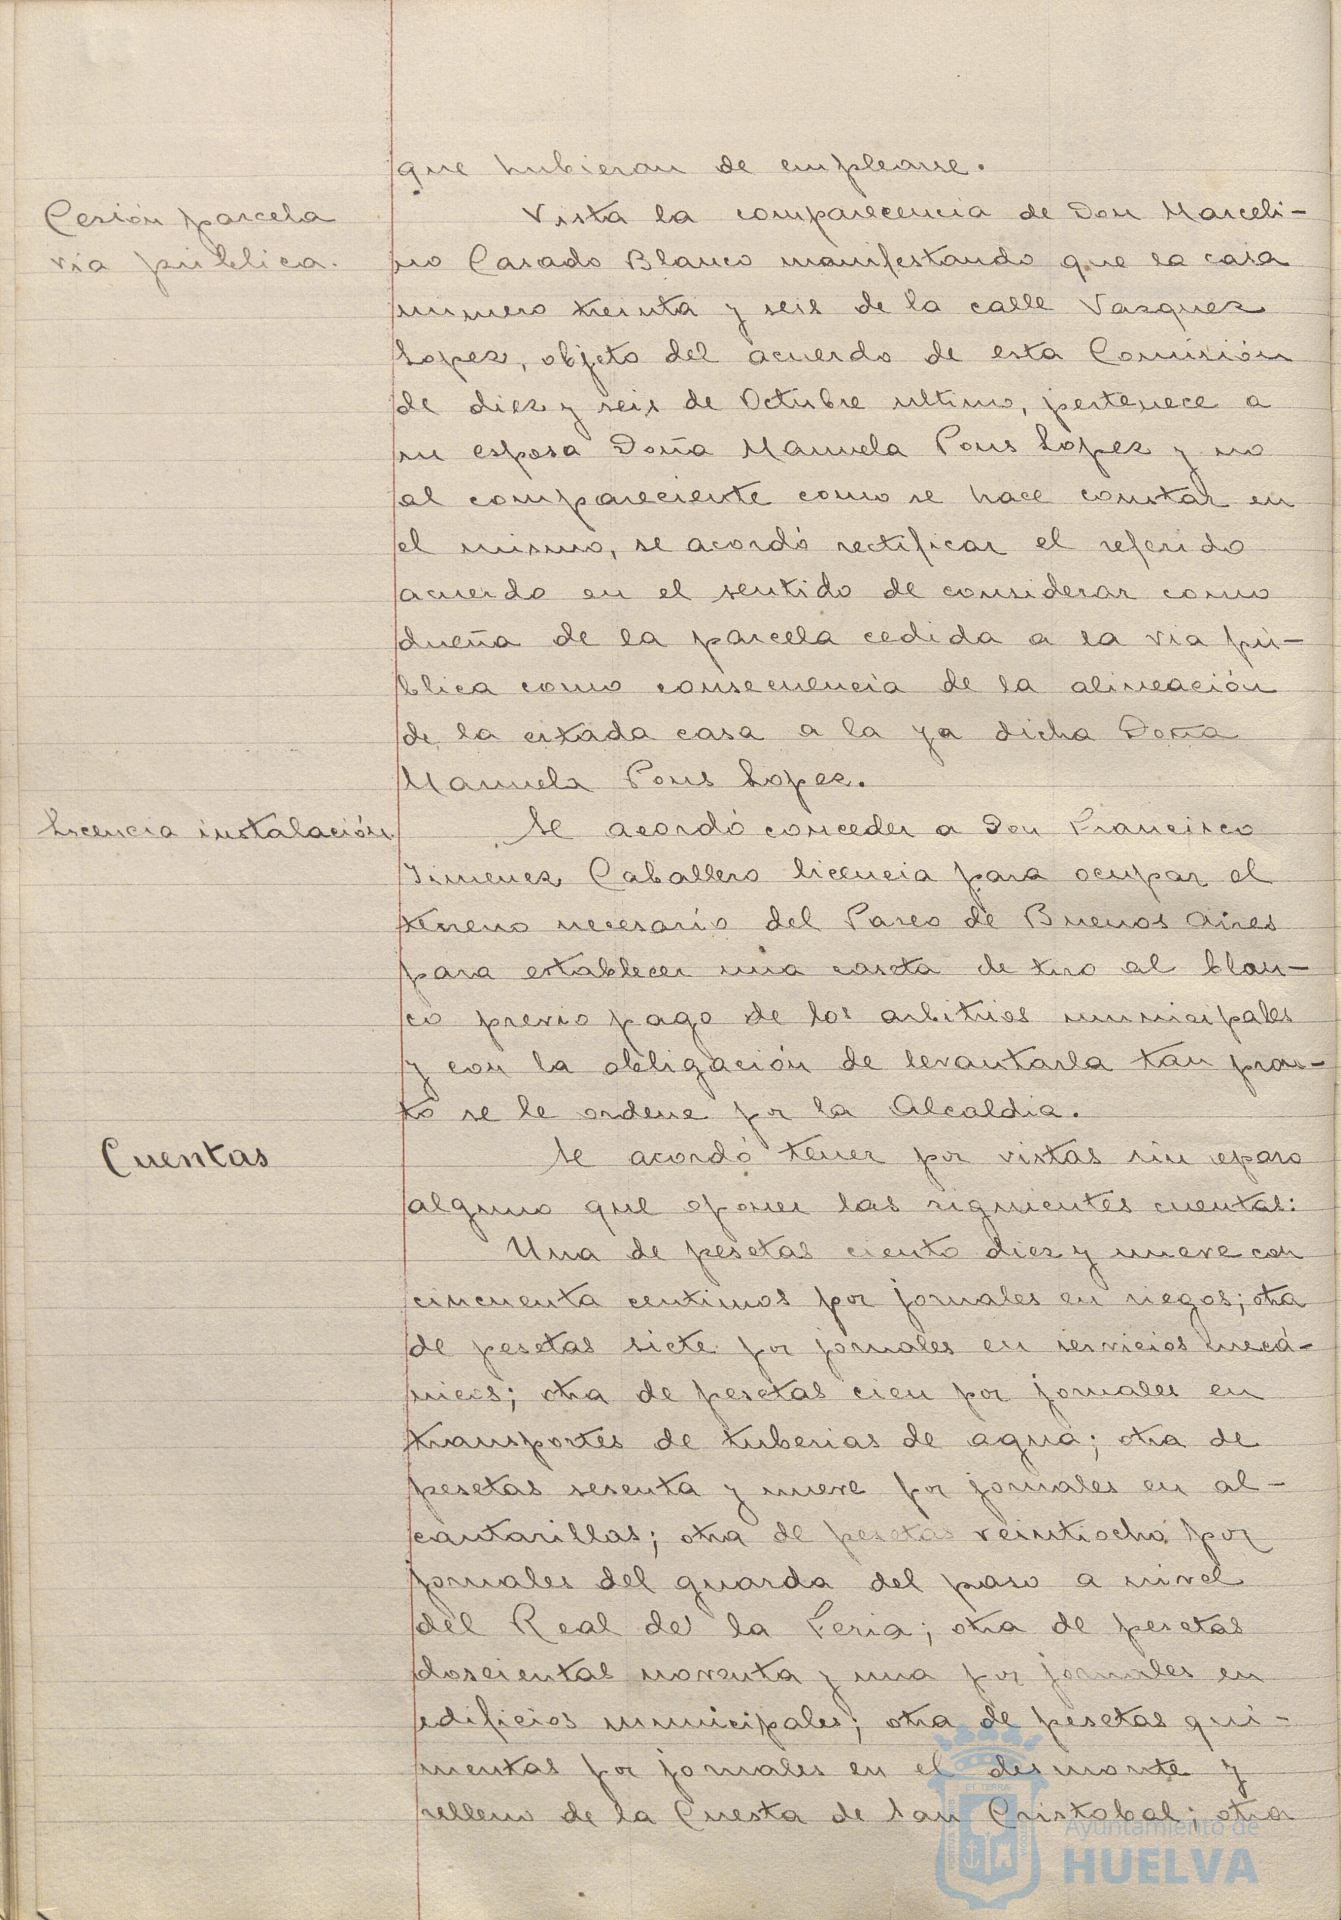 que hubieran de emplearse.
Cesión parcela
vía pública.
Vista la comparecencia de Don Marceli-
no Casado Blanco manifestando que la casa
número treinta y seis de la calle Vazquez
Lopez, objeto del acuerdo de esta Comisión
de diez y seis de Octubre ultimo, pertenece a
su esposa Doña Manuela Pons Lopez y no
al compareciente como se hace constar en
el mismo, se acordó rectificar el referido
acuerdo en el sentido de considerar como
dueña de la parcela cedida a la via pú-
blica como consecuencia de la alineación
de la citada casa a la ya dicha Doña
Manuela Pons Lopez.
Licencia instalación
Se acordó conceder a Don Francisco
Jimenez Caballero licencia para ocupar el
terreno necesario del Paseo de Buenos Aires
para establecer una caseta de tiro al blan-
co previo pago de los arbitrios municipales
y con la obligación de levantarla tan pron-
to se le ordene por la Alcaldia.
Cuentas
Se acordó tener por vistas sin reparo
alguno que oponer las siguientes cuentas:
Una de pesetas ciento diez y nueve con
cincuenta centimos por jornales en riegos; otra
de pesetas siete por jornales en servicios mecá-
nicos; otra de pesetas cien por jornales en
transportes de tuberias de agua; otra de
pesetas sesenta y nueve por jornales en al-
cantarillas; otra de pesetas veintiocho por
jornales del guarda del paso a nivel
del Real de la Feria; otra de pesetas
doscientas noventa y una por jornales en
edificios municipales; otra de pesetas qui-
nientas por jornales en el desmonte y
relleno de la Cuesta de San Cristobal; otra
Ayuntamiento de
HUELVA